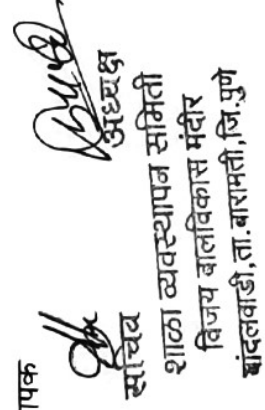 ापक
सचिव
अध्यक्ष
शाळा व्यवस्थापन समिती
विजय बालविकास मंदीर
बांदलवाडी,ता.बारामती,जि.पुणे